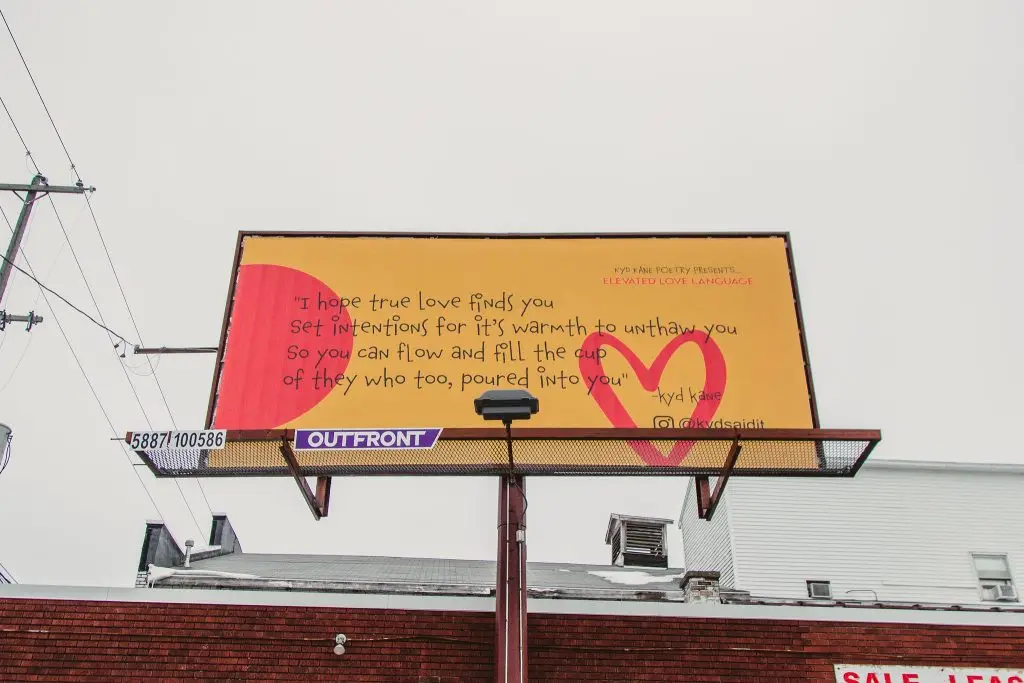 KYD KANE POETRY PRESENTS...
ELEVATED LOVE LANGUAGE
"I hope true love finds you
Set intentions for it's warmth to unthaw you
So you can flow and fill the cup
of they who too, poured into you"
-kyd kane
@kydsaidit
5887 100586
OUTFRONT
SALE